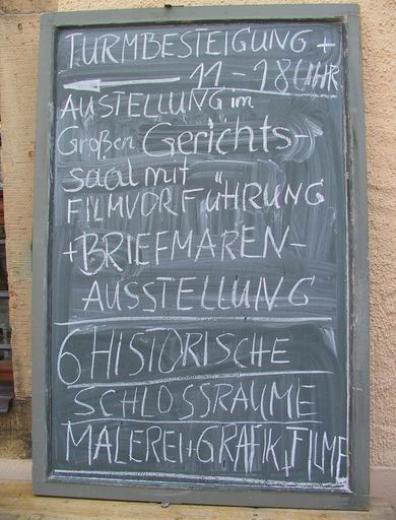 TURMBESTEIGUNG +
← 11-18 UHR
AUSTELLUNG im
Großen Gerichts-
saal mit
FILMVORFÜHRUNG
+BRIEFMAREN-
AUSSTELLUNG
6 HISTORISCHE
SCHLOSSRÄUME
MALEREI+GRAFIK, FILME